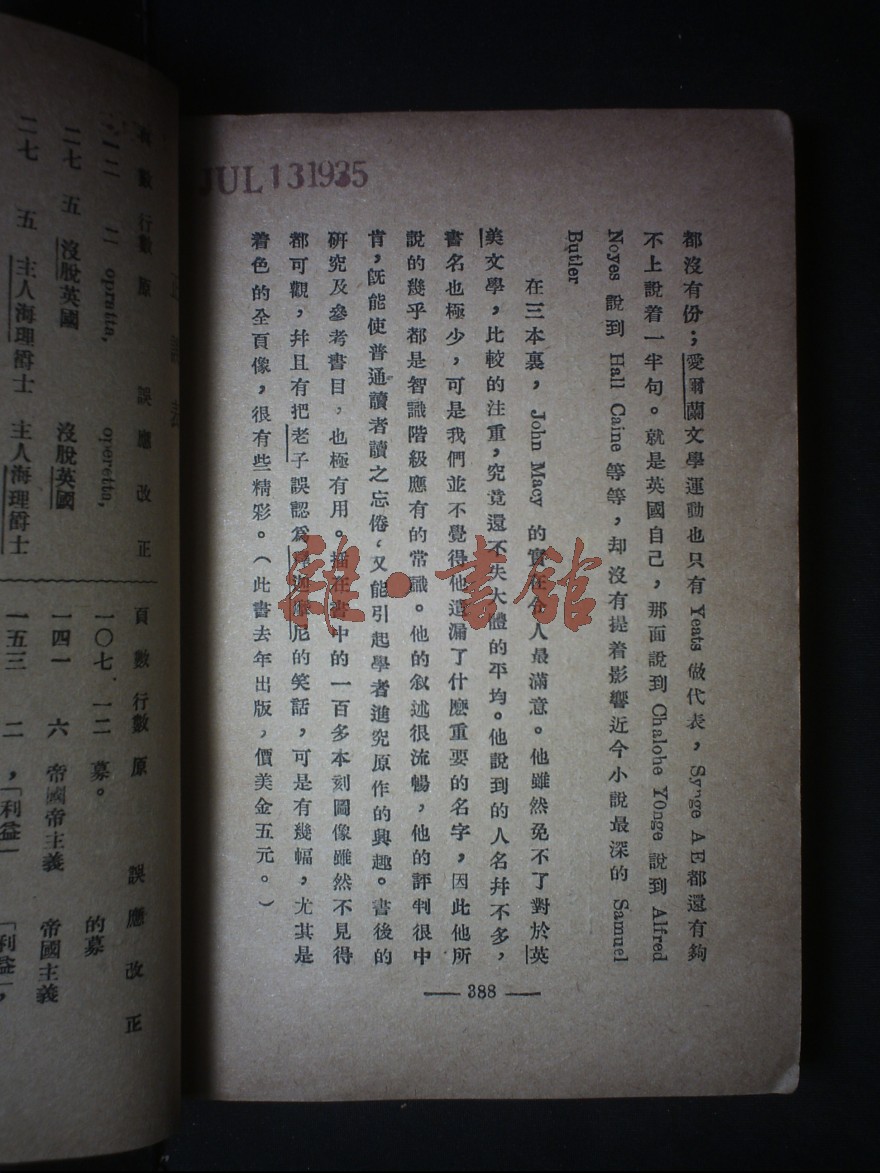 JUL 13 1935
都沒有份；愛爾蘭文學運動也只有 Yeats 做代表，Synge AE都還有夠
不上說着一半句。就是英國自己，那面說到 Chalohe Yonge 說到 Alfred
Noyes 說到 Hall Caine 等等，却沒有提着影響近今小說最深的 Samuel
Butler
在三本裏，John Macy 的實在令人最滿意。他雖然免不了對於英
美文學，比較的注重，究竟還不失大體的平均。他說到的人名幷不多，
書名也極少，可是我們並不覺得他遺漏了什麽重要的名字，因此他所
說的幾乎都是智識階級應有的常識。他的叙述很流暢，他的評判很中
肯，旣能使普通讀者讀之忘倦，又能引起學者進究原作的興趣。書後的
研究及參考書目，也極有用。插在書中的一百多本刻圖像雖然不見得
都可觀，幷且有把老子誤認爲釋迦摩尼的笑話，可是有幾幅，尤其是
着色的全頁像，很有些精彩。（此書去年出版，價美金五元。）
388
雜·書館
頁數 行數 原 誤 應改正
一〇七 一二 墓。 的墓
一四一 六 帝國帝主義 帝國主義
一五三 二 ，「利益」 「利益」，
數 行數 原 誤 應改正
二 oprutta, operetta,
二七 五 沒脫英國 沒脫英國
二七 五 主人海理爵士 主人海理爵士